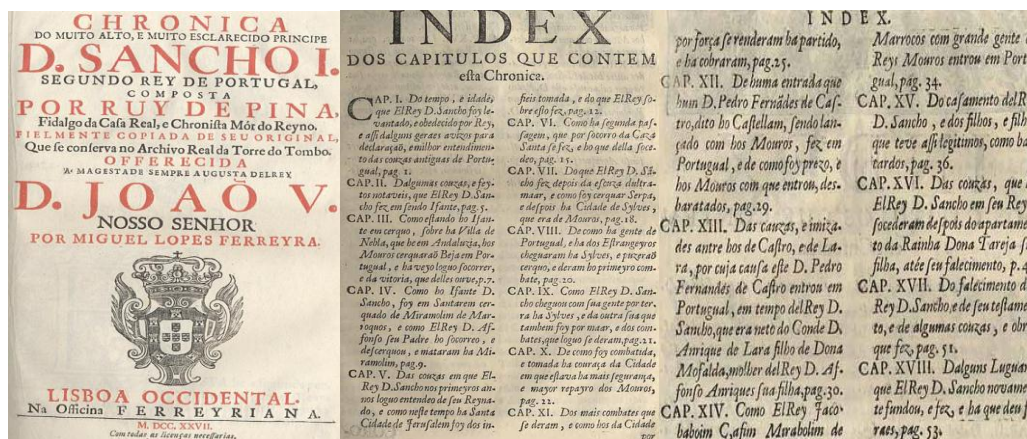 CHRONICA
DO MUITO ALTO, E MUITO ESCLARECIDO PRINCIPE
D. SANCHO I.
SEGUNDO REY DE PORTUGAL,
COMPOSTA
POR RUY DE PINA,
Fidalgo da Casa Real, e Chronista Mór do Reyno.
FIELMENTE COPIADA DE SEU ORIGINAL,
Que se conserva no Archivo Real da Torre do Tombo.
OFFERECIDA
A' MAGESTADE SEMPRE AUGUSTA DELREY
D. JOAÕ V.
NOSSO SENHOR
POR MIGUEL LOPES FERREYRA.
LISBOA OCCIDENTAL.
Na Officina FERREYRIANA.
M. DCC. XXVII.
Com todas as licenças necessarias.
INDEX
DOS CAPITULOS QUE CONTEM
esta Chronica.
CAP. I. Do tempo, e idade,
que ElRey D. Sancho foy le-
vantado, e obedecido por Rey,
e assi dalguns geraes avizos para
declaraçaõ, e milhor entendimen-
to das couzas antiguas de Portu-
gual, pag. 1.
CAP. II. Dalgumas couzas, e fey-
tos notaveis, que ElRey D. San-
cho fez em sendo Ifante, pag. 5.
CAP. III. Como estando ho Ifan-
te em cerquo, sobre ha Villa de
Nebla, que he em Andaluzia, hos
Mouros cerquaraõ Beja em Por-
tugual, e ha veyo loguo socorrer,
e da vitoria, que delles ouve, p. 7.
CAP. IV. Como ho Ifante D.
Sancho, foy em Santarem cer-
quado de Miramolim de Mar-
roquos, e como ElRey D. Af-
fonso seu Padre ho socorreo, e
descerquou, e mataram ha Mi-
ramolim, pag. 9.
CAP. V. Das couzas em que El-
Rey D. Sancho nos primeyros an-
nos loguo entendeo de seu Reyna-
do, e como neste tempo ha Santa
Cidade de Jerusalem foy dos in-
fieis tomada, e do que ElRey so-
bre esto fez, pag. 12.
CAP. VI. Como ha segunda pas-
sagem, que por socorro da Caza
Santa se fez, e ho que della soce-
deo, pag. 15.
CAP. VII. Do que ElRey D. Sã-
cho fez depois da esta dultra-
maar, e como foy cercuar Serpa,
e despois ha Cidade de Sylves,
que era de Mouros, pag. 18.
CAP. VIII. De como ha gente de
Portugual, e ha dos Estrangeyros
cheguaram ha Sylves, e puzeraõ
cerquo, e deram ho primeyro com-
bate, pag. 20.
CAP. IX. Como ElRey D. San-
cho cheguou com sua gente por ter-
ra ha Sylves, e da outra sua que
tambem foy por maar, e dos com-
bates, que loguo se deram, pag. 21.
CAP. X. De como foy combatuda,
e tomada ha couraça da Cidade
em que estava ha mais segurança,
e mayor repayro dos Mouros,
pag. 22.
CAP. XI. Dos mais combates que
se deram, e como hos da Cidade
por
INDEX.
por força se renderam ha partido,
e ha cobraram, pag. 25.
CAP. XII. De huma entrada que
hum D. Pedro Fernãdes de Cas-
tro, dito ho Castellam, sendo lan-
çado com hos Mouros, fez em
Portugual, e de como foy prezo, e
hos Mouros com que entrou, des-
baratados, pag. 29.
CAP. XIII. Das cauzas, e imiza-
des antre hos de Castro, e de La-
ra, por cuja causa este D. Pedro
Fernandes de Castro entrou em
Portugual, em tempo del Rey D.
Sancho, que era neto do Conde D.
Anrique de Lara filho de Dona
Mofalda, molher del Rey D. Af-
fonso Anriques sua filha, pag. 30.
CAP. XIV. Como ElRey Jaco-
baboim C, afim Mirabolim de
Marrocos com grande gente
Reys Mouros entrou em Port
gual, pag. 34.
CAP. XV. Do casamento del R
D. Sancho, e dos filhos, e fil
que teve assi legitimos, como ba
tardos, pag. 36.
CAP. XVI. Das couzas, que
ElRey D. Sancho em seu Rey
socederam despois do apartame
to da Rainha Dona Tareja
filha, atée seu falecimento, p. 4
CAP. XVII. Do falecimento d
Rey D. Sancho, e de seu testame
to, e de algumas couzas, e obr
que fez, pag. 51.
CAP. XVIII. Dalguns Luguar
que ElRey D. Sancho novame
te fundou, e fez, e ha que deu
raes, pag. 53.